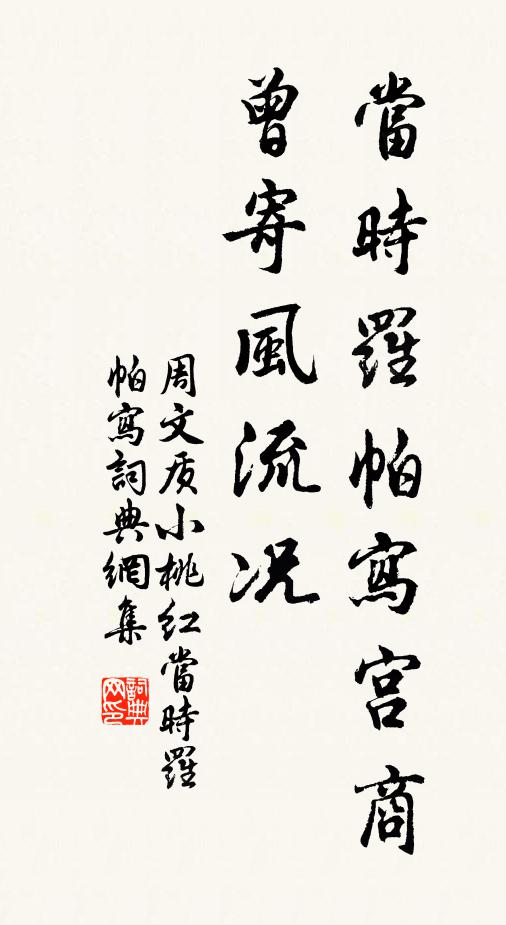 當時羅帕寫宮商
曾寄風流况
周文质小桃红當時羅
帕寫詞典網集
詞典
网印